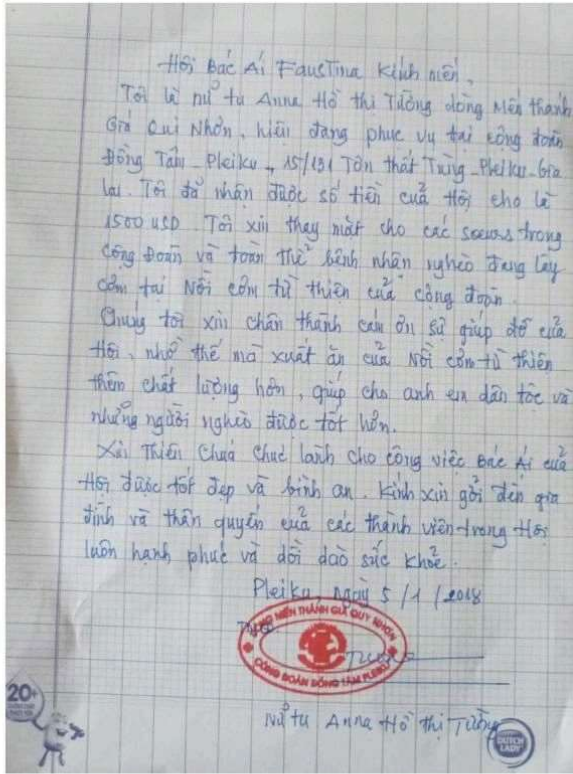 Hội Bác Ái Faustina Kính mến,
Tôi là nữ tu Anna Hồ thị Tường dòng Mến thánh
Giá Qui Nhơn, hiện đang phục vụ tại cộng đoàn
Đồng Tâm - Pleiku, 15/191 Tôn thất Tùng - Pleiku - Gia
lai. Tôi đã nhận được số tiền của Hội cho là
1500 USD. Tôi xin thay mặt cho các soeurs trong
Cộng Đoàn và toàn thể bệnh nhân nghèo đang lấy
cơm tại Nồi cơm từ thiện của cộng đoàn.
Chúng tôi xin chân thành cám ơn sự giúp đỡ của
Hội, nhờ thế mà xuất ăn của Nồi cơm từ thiện
thêm chất lượng hơn, giúp cho anh em dân tộc và
những người nghèo được tốt hơn.
Xin Thiên Chúa chúc lành cho công việc Bác Ái của
Hội được tốt đẹp và bình an. Kính xin gởi đến gia
đình và thân quyến của các thành viên trong Hội
luôn hạnh phúc và dồi dào sức khoẻ.
Pleiku, ngày 5/1/2018
MẾN THÁNH GIÁ QUY NHƠN
CỘNG ĐOÀN ĐỒNG TÂM PLEIKU
Nữ tu Anna Hồ thị Tường
20+
DUTCH LADY